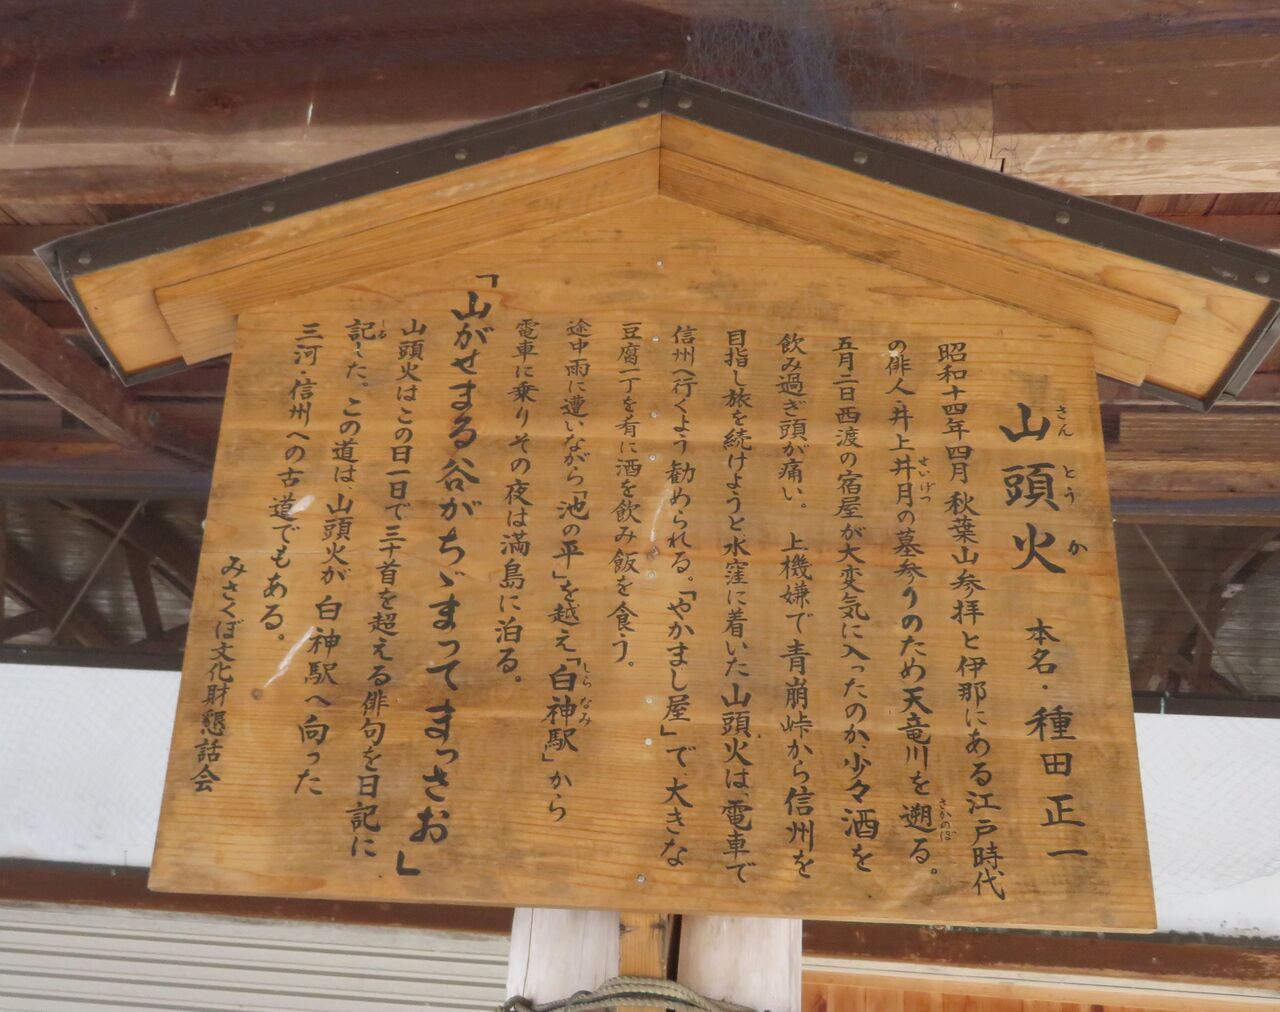 山頭火 本名・種田正一
さん とう か
昭和十四年四月秋葉山参拝と伊那にある江戸時代
の俳人・井上井月の墓参りのため天竜川を遡る。
せいげつ
さかのぼ
五月二日西渡の宿屋が大変気に入ったのか、少々酒を
飲み過ぎ頭が痛い。上機嫌で青崩峠から信州を
目指し旅を続けようと水窪に着いた山頭火は、電車で
信州へ行くよう勧められる。「やかまし屋」で大きな
豆腐一丁を肴に酒を飲み飯を食う。
途中雨に遭いながら「池の平」を越え「白神駅」から
しらなみ
電車に乗りその夜は満島に泊る。
「山がせまる谷がちゞまってまっさお」
山頭火はこの日一日で三十首を超える俳句を日記に
記した。この道は、山頭火が白神駅へ向った
しる
三河・信州への古道でもある。
みさくぼ文化財懇話会